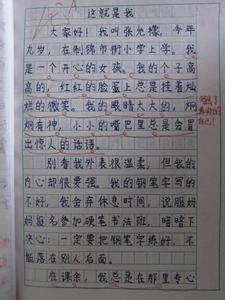 这就是我
大家好！我叫张允檬，今年
九岁，在制锦市街小学上学。我
是一个开心的女孩。我的个子高
高的，红红的脸蛋上总是挂着灿
烂的微笑。我的眼睛大大的，炯
炯有神，小小的嘴巴里总是会冒
出惊人的话语。
别看我外表很温柔，但我的
内心却很要强。我的钢笔字写的
不好，我会弃休息时间，说服妈
妈报名参加硬笔书法班，暗暗下
决心：一定要把钢笔字练好，不
能落在别人后面。
在课余，我总是在那里专心